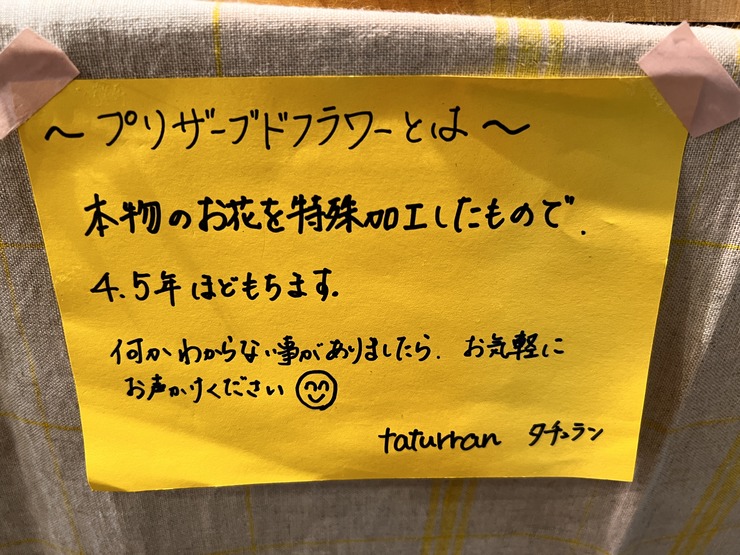 ～プリザーブドフラワーとは～
本物のお花を特殊加工したもので、
4、5年ほどもちます。
何かわからない事がありましたら、お気軽に
お声かけください
taturran タチュラン